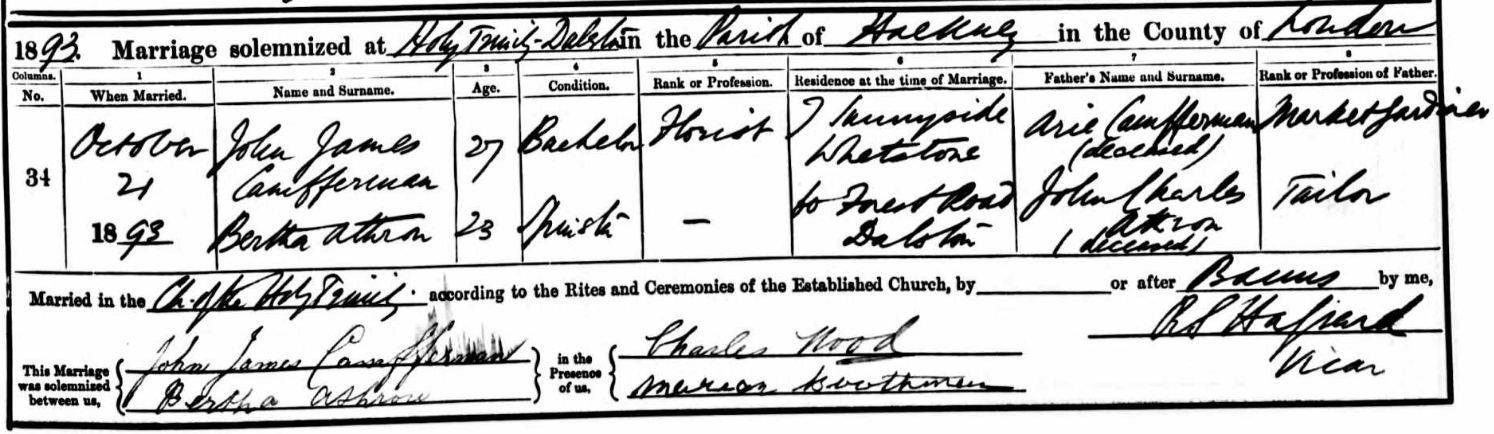 1893. Marriage solemnized at Holy Trinity-Dalston in the Parish of Hackney in the County of London
Columns. 1 2 3 4 5 6 7 8
No. When Married. Name and Surname. Age. Condition. Rank or Profession. Residence at the time of Marriage. Father's Name and Surname. Rank or Profession of Father.
34 October 21 1893 John James Camfferman 27 Bachelor Florist 7 Sunnyside Whetstone Arie Camfferman (deceased) Market Gardiner
Bertha Athron 23 Spinster — Forest Road Dalston John Charles Athron (deceased) Tailor
Married in the Ch. of the Holy Trinity. according to the Rites and Ceremonies of the Established Church, by or after Banns by me,
Vicar
This Marriage was solemnized between us, { John James Camfferman } in the Presence of us, { Charles Wood
Bertha Athron Marian